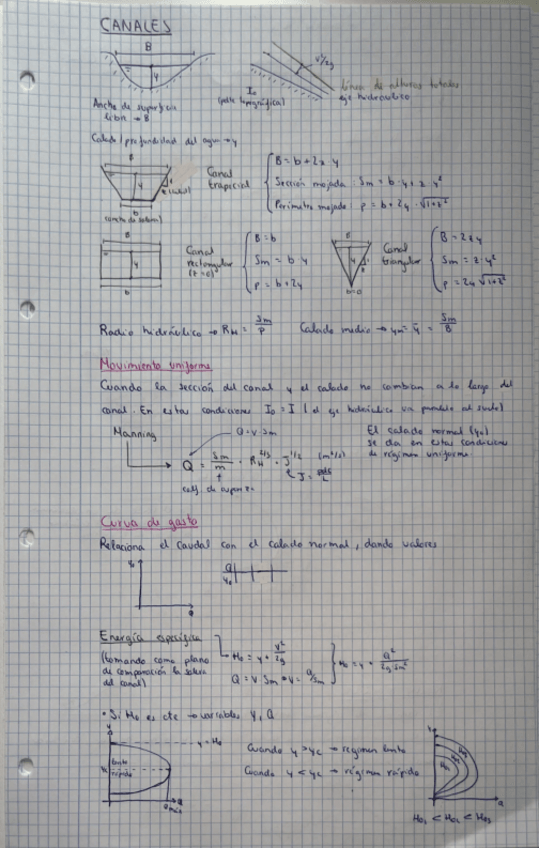 CANALES
B
y
V²/2g
I₀
(pdte topográfica)
línea de alturas totales
eje hidráulico
Ancho de superficie
libre → B
Calado/profundidad del agua → y
B
y
b
Canal
trapicial
B = b + 2z · y
Sección mojada: Sm = b · y + z · y²
Perímetro mojado: p = b + 2y · √1+z²
B
y
b
Canal
rectangular
(z=0)
B = b
Sm = b · y
p = b + 2y
B
y
b=0
Canal
triangular
B = 2zy
Sm = z · y²
p = 2y √1+z²
Radio hidráulico → RH = Sm/p
Calado medio → ym = ȳ = Sm/B
Movimiento uniforme
Cuando la sección del canal y el calado no cambian a lo largo del
canal. En estas condiciones I₀ = I (el eje hidráulico va paralelo al suelo)
Manning
Q = V · Sm
El calado normal (y₀)
se da en estas condiciones
de régimen uniforme
Q = Sm/m · RH^2/3 · J^1/2 (m³/s)
coef. de
J =
Curva de gasto
Relaciona el caudal con el calado normal, dando valores
y₀
Q
Q
y₀
Energía específica
(tomando como plano
de comparación la solera
del canal)
H₀ = y + V²/2g
Q = V · Sm → V = Q/Sm
H₀ = y + Q²/2g·Sm²
• Si H₀ es cte → variables y, Q
y
y = H₀
lento
yc
rápido
Q
Qmáx
Cuando y > yc → régimen lento
Cuando y < yc → régimen rápido
y
H₀₃
H₀₂
H₀₁
Q
H₀₁ < H₀₂ < H₀₃